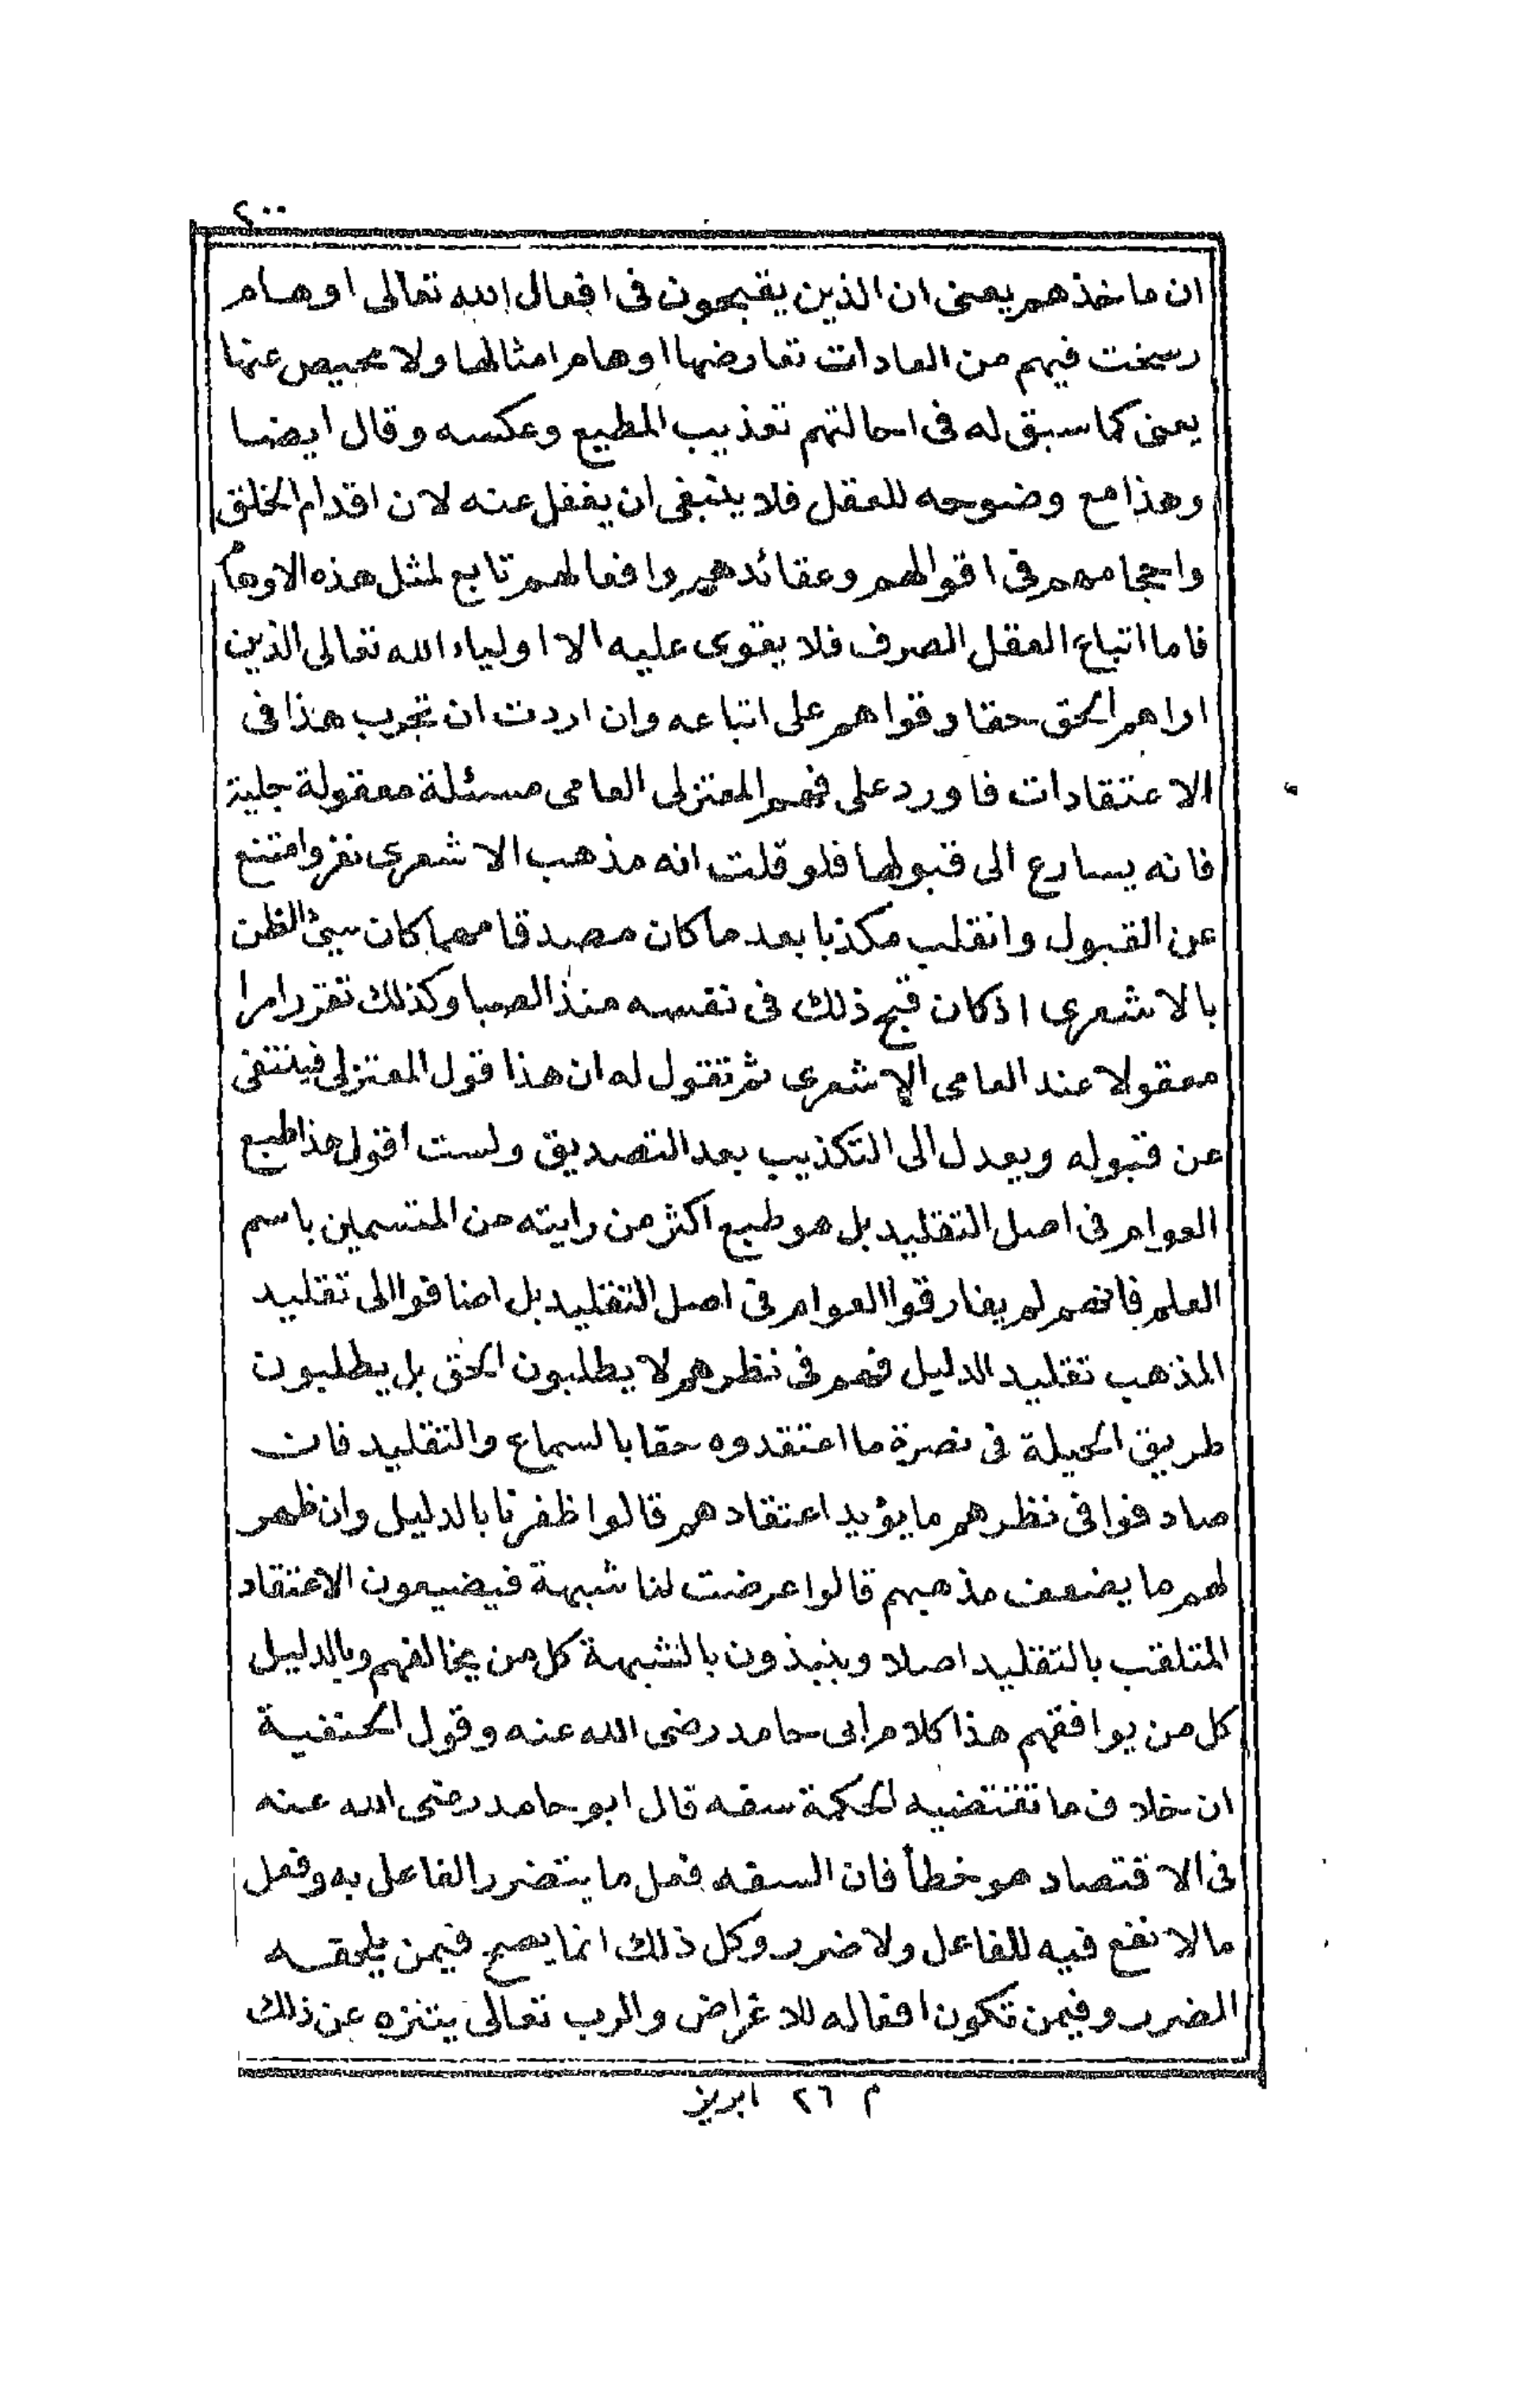 ٤٠٠
ان ماخذهم يعنى ان الذين يقبحون فى افعال الله تعالى اوهام
رسخت فيهم من العادات تعارضها اوهام امثالها ولا محيص عنها
يعنى كما سبق له فى احالتهم تعذيب المطيع وعكسه وقال ايضا
وهذا مع وضوحه للعقل فلا ينبغى ان يغفل عنه لان اقدام الخلق
واحجامهم فى اقوالهم وعقائدهم وافعالهم تابع لمثل هذه الاوهام
فاما اتباع العقل الصرف فلا يقوى عليه الا اولياء الله تعالى الذين
اراهم الحق حقا وقواهم على اتباعه وان اردت ان تجرب هذا فى
الاعتقادات فاورد على فهم المعتزلى العامى مسئلة معقولة جلية
فانه يسارع الى قبولها فلو قلت انه مذهب الاشعرى نفر وامتنع
عن القبول وانقلب مكذبا بعد ما كان مصدقا مهما كان سيئ الظن
بالاشعرى اذ كان قبح ذلك فى نفسه منذ الصبا وكذلك تقرر امرا
معقولا عند العامى الاشعرى ثم تقول له ان هذا قول المعتزلى فينتفى
عن قبوله ويعدل الى التكذيب بعد التصديق ولست اقول هذا طبع
العوام فى اصل التقليد بل هو طبع اكثر من رايته من المتسمين باسم
العلم فانهم لم يفارقوا العوام فى اصل التقليد بل اضافوا الى تقليد
المذهب تقليد الدليل فهم فى نظرهم لا يطلبون الحق بل يطلبون
طريق الحيلة فى نصرة ما اعتقدوه حقا بالسماع والتقليد فان
صادفوا فى نظرهم ما يؤيد اعتقادهم قالوا ظفرنا بالدليل وان ظهر
لهم ما يضعف مذهبهم قالوا عرضت لنا شبهة فيضيعون الاعتقاد
المتلقب بالتقليد اصلا وينبذون بالشبهة كل من يخالفهم وبالدليل
كل من يوافقهم هذا كلام ابى حامد رضى الله عنه وقول الحنفية
ان خلاف ما تقتضيه الحكمة سفه قال ابو حامد رضى الله عنه
فى الاقتصاد هو خطأ فان السفه فعل ما يتضرر الفاعل به وفعل
ما لا نفع فيه للفاعل ولا ضرر وكل ذلك انما يصح فيمن يلحقه
الضرر وفيمن تكون افعاله للاغراض والرب تعالى يتنزه عن ذلك
م ٢٦ ابريز